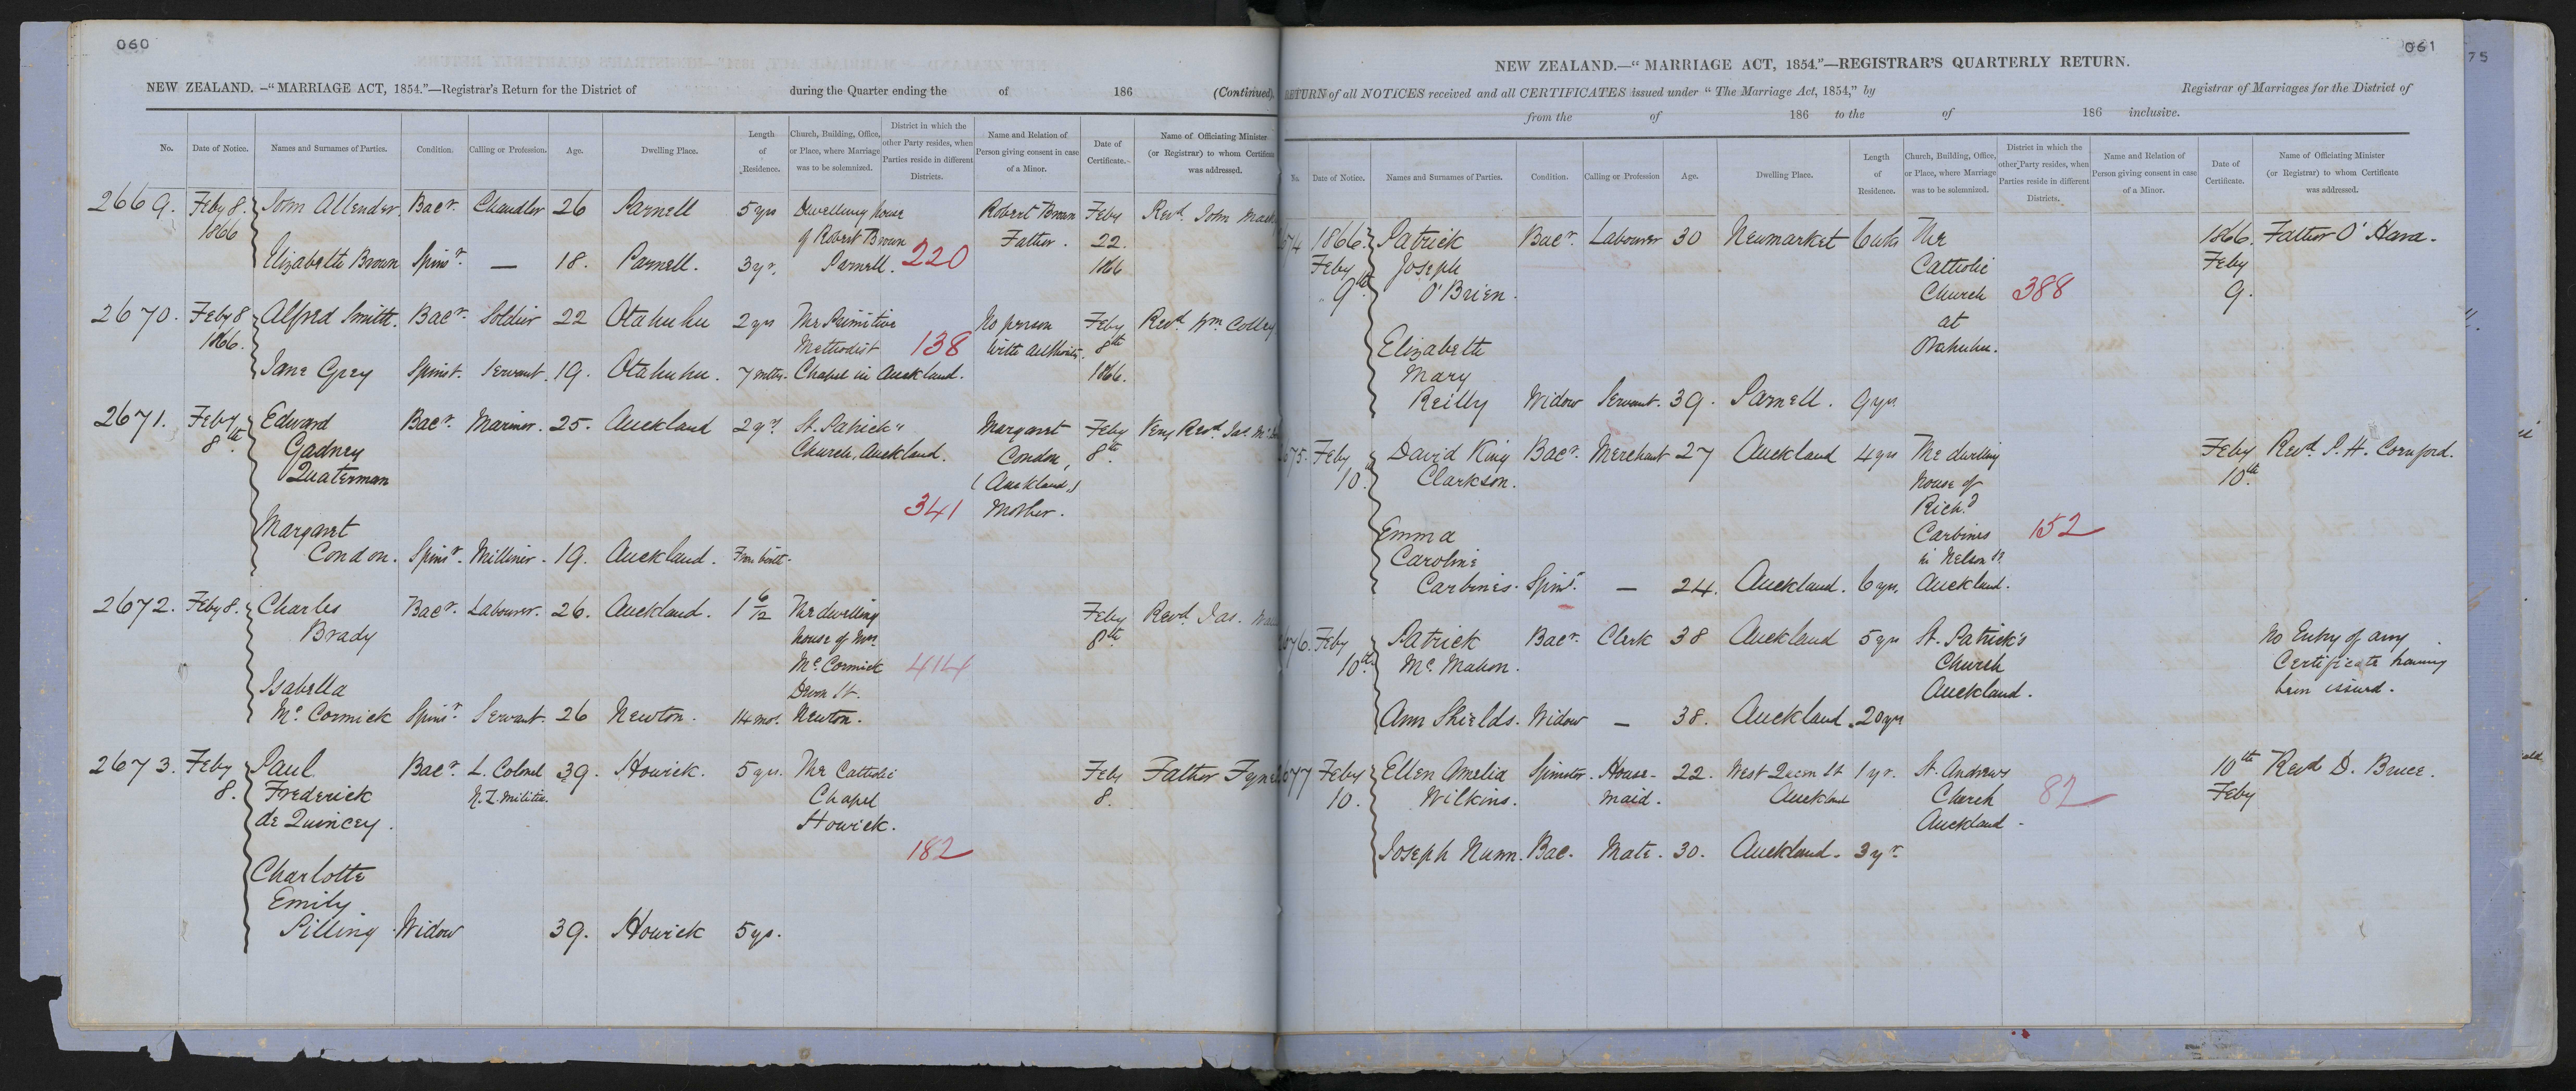 060
NEW ZEALAND. -"MARRIAGE ACT, 1854."—Registrar's Return for the District of during the Quarter ending the of 186 (Continued).
No. Date of Notice. Names and Surnames of Parties. Condition. Calling or Profession. Age. Dwelling Place. Length of Residence. Church, Building, Office, or Place, where Marriage was to be solemnized. District in which the other Party resides, when Parties reside in different Districts. Name and Relation of Person giving consent in case of a Minor. Date of Certificate. Name of Officiating Minister (or Registrar) to whom Certificate was addressed.
2669. Feby 8. John Allender. Bacr. Chandler 26 Parnell 5 yrs Dwelling house Robert Brown Feby Revd. John
1866 of Robert Brown Father. 22.
Elizabeth Brown Spinsr. — 18. Parnell. 3 yr. Parnell. 220 1866
2670. Feby 8 Alfred Smith. Bacr. Soldier 22 Otahuhu 2 yrs The Primitive No person Feby Revd. Wm. Colley
1866. Methodist 138 with authority. 8th
Jane Grey Spinst. Servant. 19. Otahuhu. 7 mths. Chapel in Auckland. 1866.
2671. Feby Edward Bacr. Mariner. 25. Auckland 2 yrs. St. Patrick's Margaret Feby Very Revd. Jas.
8th. Gadney Church, Auckland. Condon, 8th.
Quaterman (Auckland,)
341 Mother.
Margaret
Condon. Spinsr. Milliner. 19. Auckland. From birth.
2672. Feby 8. Charles Bacr. Labourer. 26. Auckland. 1 6/12 The dwelling Feby Revd. Jas.
Brady house of Mrs. 8th.
Mc. Cormick 414
Isabella St.
Mc. Cormick Spinsr. Servant. 26 Newton. 14 mos. Newton.
2673. Feby Paul Bacr. L. Colonel 39. Howick. 5 yrs. The Catholic Feby Father
8. Frederick N.Z. Militia. Chapel 8.
de Quincey. Howick.
182
Charlotte
Emily
Pilling Widow 39. Howick 5 yrs.
061
75
NEW ZEALAND.—"MARRIAGE ACT, 1854."—REGISTRAR'S QUARTERLY RETURN.
RETURN of all NOTICES received and all CERTIFICATES issued under "The Marriage Act, 1854," by Registrar of Marriages for the District of
from the of 186 to the of 186 inclusive.
No. Date of Notice. Names and Surnames of Parties. Condition. Calling or Profession Age. Dwelling Place. Length of Residence. Church, Building, Office, or Place, where Marriage was to be solemnized. District in which the other Party resides, when Parties reside in different Districts. Name and Relation of Person giving consent in case of a Minor. Date of Certificate. Name of Officiating Minister (or Registrar) to whom Certificate was addressed.
1866. Patrick Bacr. Labourer 30 Newmarket 6 wks The 1866. Father O'Hara.
Feby Joseph Catholic Feby
9th. O'Brien. Church 388 9.
at
Elizabeth Otahuhu.
Mary
Reilly Widow Servant. 39. Parnell. 9 yrs
Feby David King Bacr. Merchant 27 Auckland 4 yrs The dwelling Feby Revd. P. H. Cornford.
10. Clarkson. house of 10th.
Richd.
Emma Carbines 152
Caroline in Nelson St.
Carbines. Spinsr. — 24. Auckland. 6 yrs. Auckland.
Feby Patrick Bacr. Clerk 38 Auckland 5 yrs St. Patrick's No Entry of any
10th. Mc. Mahon. Church Certificate having
Auckland. been issued.
Ann Shields. Widow — 38. Auckland. 20 yrs
Feby Ellen Amelia Spinster. House- 22. West Queen St 1 yr. St. Andrews 10th Revd D. Bruce.
10. Wilkins. maid. Auckland Church 82 Feby
Auckland.
Joseph Nunn. Bac. Mate. 30. Auckland. 3 yr.